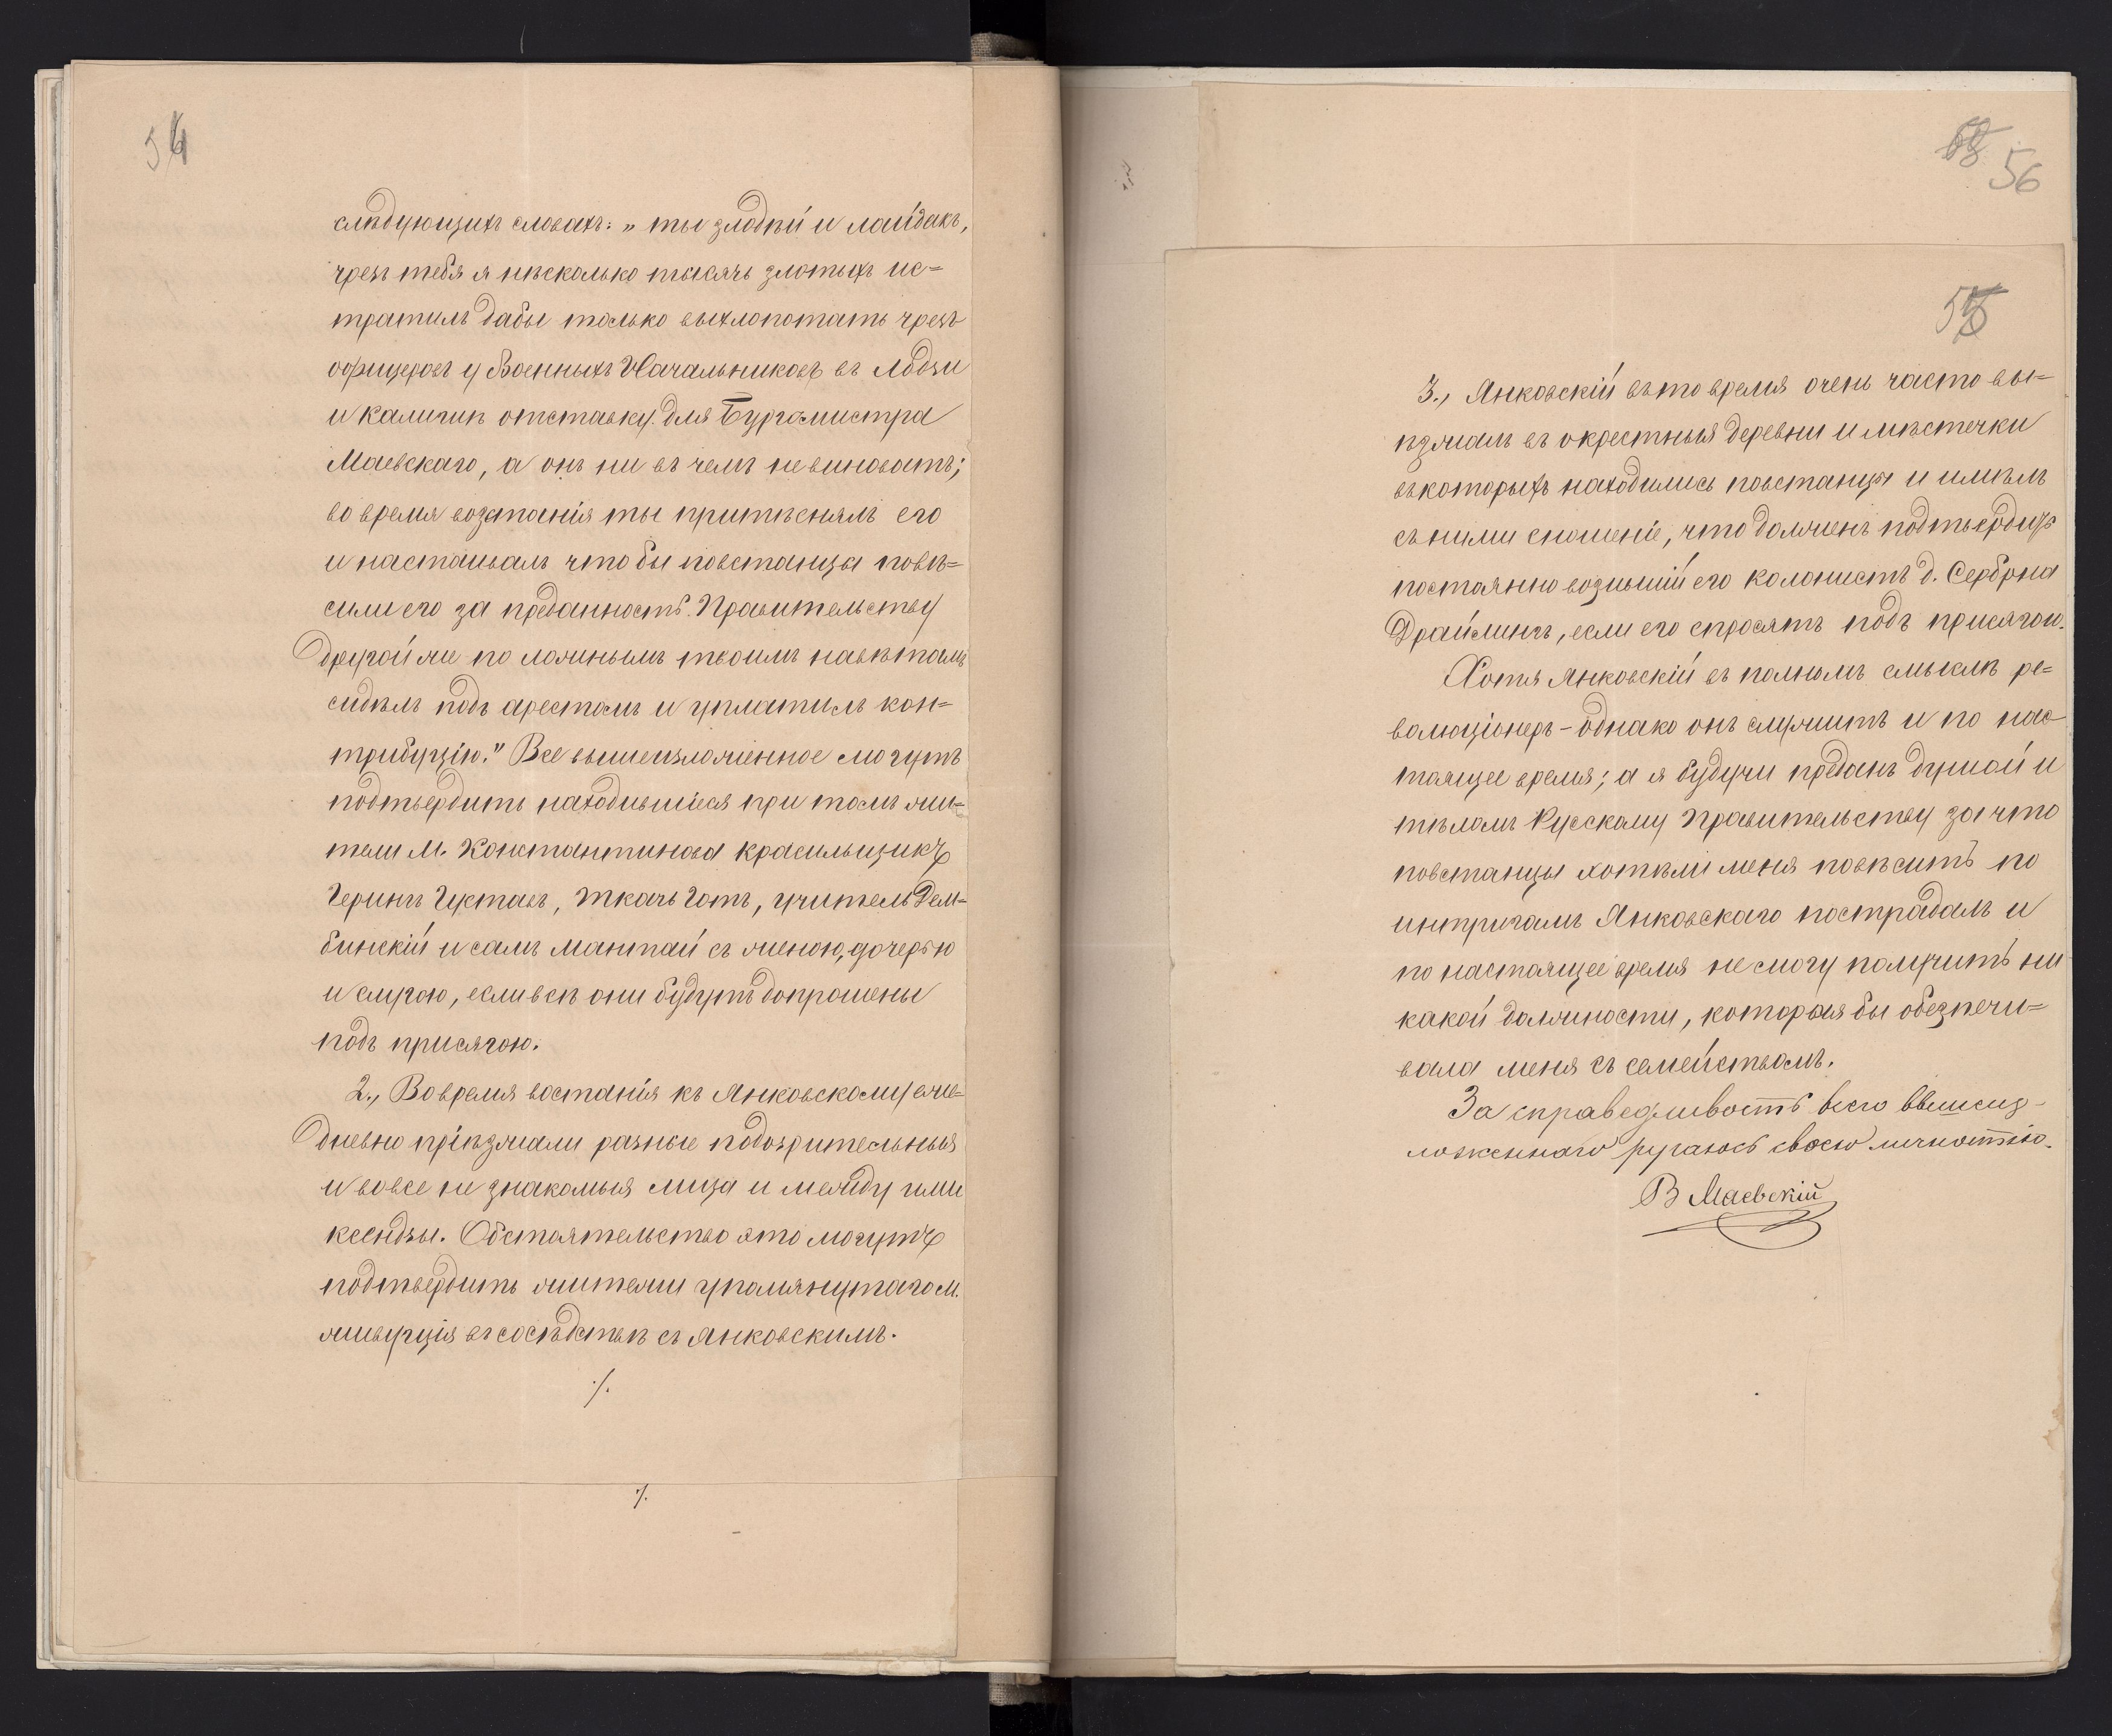 слѣдующихъ словахъ: „ты злодѣй и лайдакъ,
чрезъ тебя я нѣсколько тысячъ злотыхъ ис=
тратилъ дабы только выхлопотать чрезъ
офицеровъ у Военныхъ Начальниковъ въ Лодзи
и Калишѣ отставку для Бургомистра
Маевскаго, а онъ ни въ чемъ не виноватъ;
во время возстанія ты притѣснялъ его
и настаивалъ чтобы повстанцы повѣ=
сили его за преданность Правительству
другой же по ложнымъ твоимъ навѣтамъ
сидѣлъ подъ арестомъ и уплатилъ кон=
трибуцію." Все вышеизложенное могутъ
подтвердить находившіеся при томъ жи=
тели М. Константинова красильщикъ
Герингъ Густавъ, ткачъ Готъ, учитель Дем=
бинскій и самъ Мантай съ женою, дочерью
и слугою, если всѣ они будутъ допрошены
подъ присягою.
2., Во время востанія къ Янковскому еже=
дневно пріѣзжали разные подозрительныя
и вовсе не знакомыя лица и между ими
ксендзы. Обстоятельство это могутъ
подтвердить жители упомянутаго М.
живущія въ сосѣдствѣ съ Янковскимъ.
./.
./.
56
3., Янковскій въ то время очень часто вы=
ѣзжалъ въ окрестныя деревни и мѣстечки
въ которыхъ находились повстанцы и имѣлъ
съ ними сношеніе, что долженъ подтвердить
постоянно возившій его колонистъ д. Сербрна
Драйлингъ, если его спросятъ подъ присягою.
Хотя Янковскій въ полномъ смыслѣ ре=
волюціонеръ - однако онъ служитъ и по нас=
тоящее время; а я будучи преданъ душой и
тѣломъ Русскому Правительству за что
повстанцы хотѣли меня повѣсить по
интригамъ Янковскаго пострадалъ и
по настоящее время не могу получить ни
какой должности, которая бы обезпечи=
вала меня съ семействомъ.
За справедливость всего вышеиз-
ложеннаго ручаюсь своею личностію.
В Маевскій